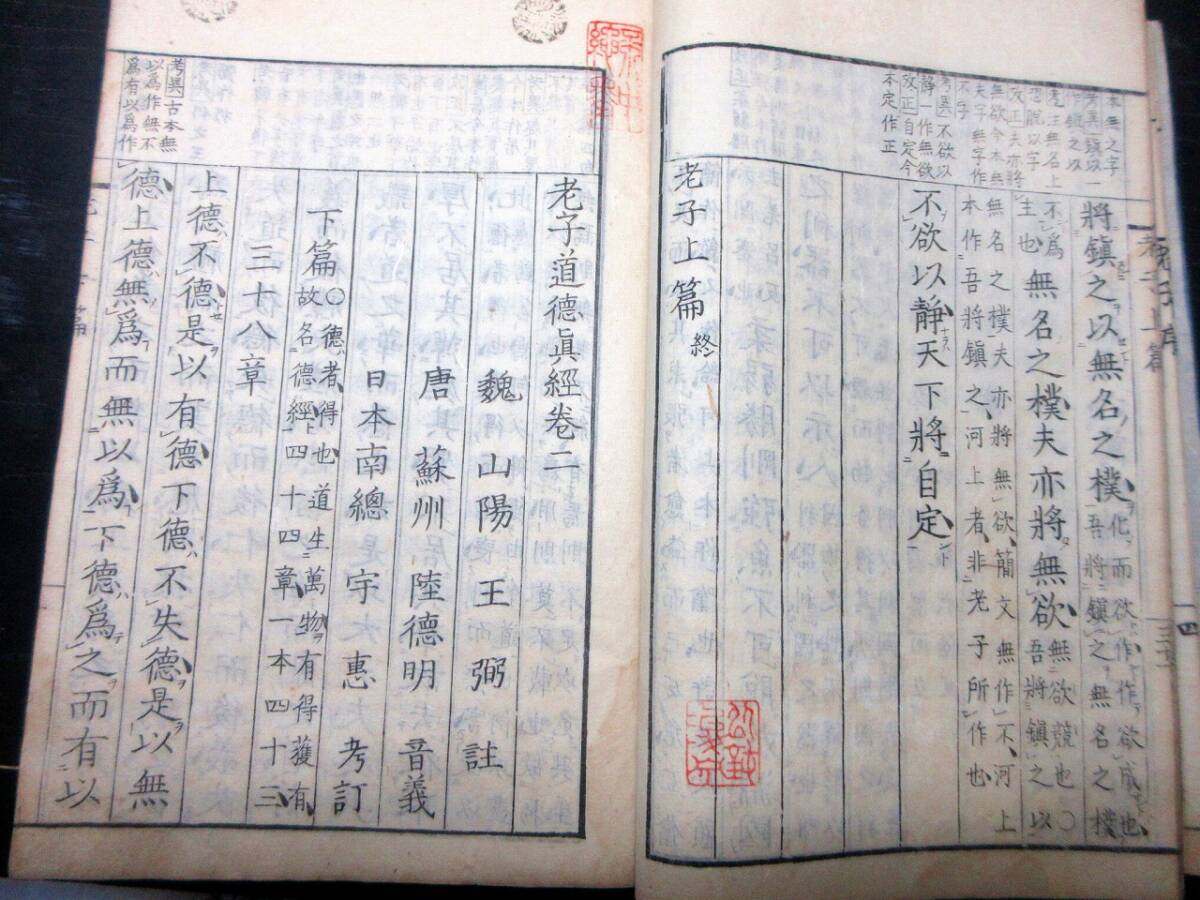 本無之字
考異鎮以一
無欲今本無
夫字無字作
不字
考異不欲以
靜一作無欲
改正自定今
本定作正
將鎮之以無名之樸
化而欲作作欲成也
吾將鎮之無名之樸
不爲
生也
無名之樸夫亦將無欲
無欲競也○
吾將鎮之以
無名之樸夫亦將無欲簡文無作不河上
本作吾將鎮之河上者非老子所作也
不欲以靜天下將自定
老子上篇終
老子道德眞經卷二
魏 山陽 王弼 註
唐 蘇州 陸德明 音義
日本南總 宇惠 考訂
下篇○德者得也道生萬物有得獲有
故名德經四十四章一本四十三
三十八章
考異古本無
以爲作無不
爲有以爲作
上德不德是以有德下德不失德是以無
德上德無爲而無以爲下德爲之而有以